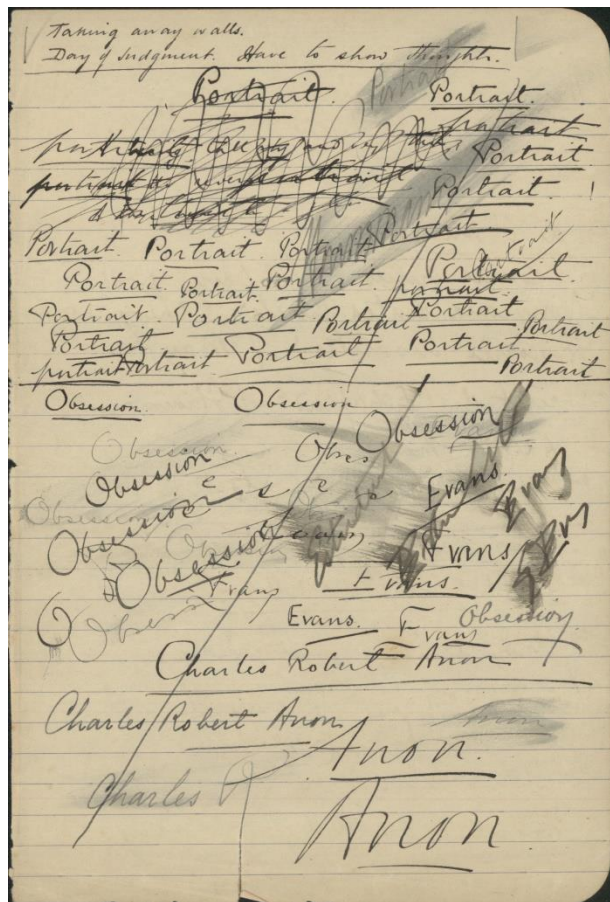 Taking away walls.
Day of Judgment. Have to show thoughts.
Portrait. Portrait Portrait.
portrait
Portrait
portrait Portrait
Portrait. Portrait. Portrait. Portrait
Portrait
Portrait. Portrait. Portrait Portrait
portrait
Portrait. Portrait Portrait Portrait
Portrait Portrait
Portrait Portrait Portrait
portrait Portrait Portrait
Obsession. Obsession
Obsession
Obsession. Obses
Obsession Evans. Evans
e s e
Obsession
Obsession Evans
Obsession
Obsession Evans Evans.
Evans. Evans Obsession
Charles Robert Anon
Charles Robert Anon Anon
Anon.
Charles R
Anon